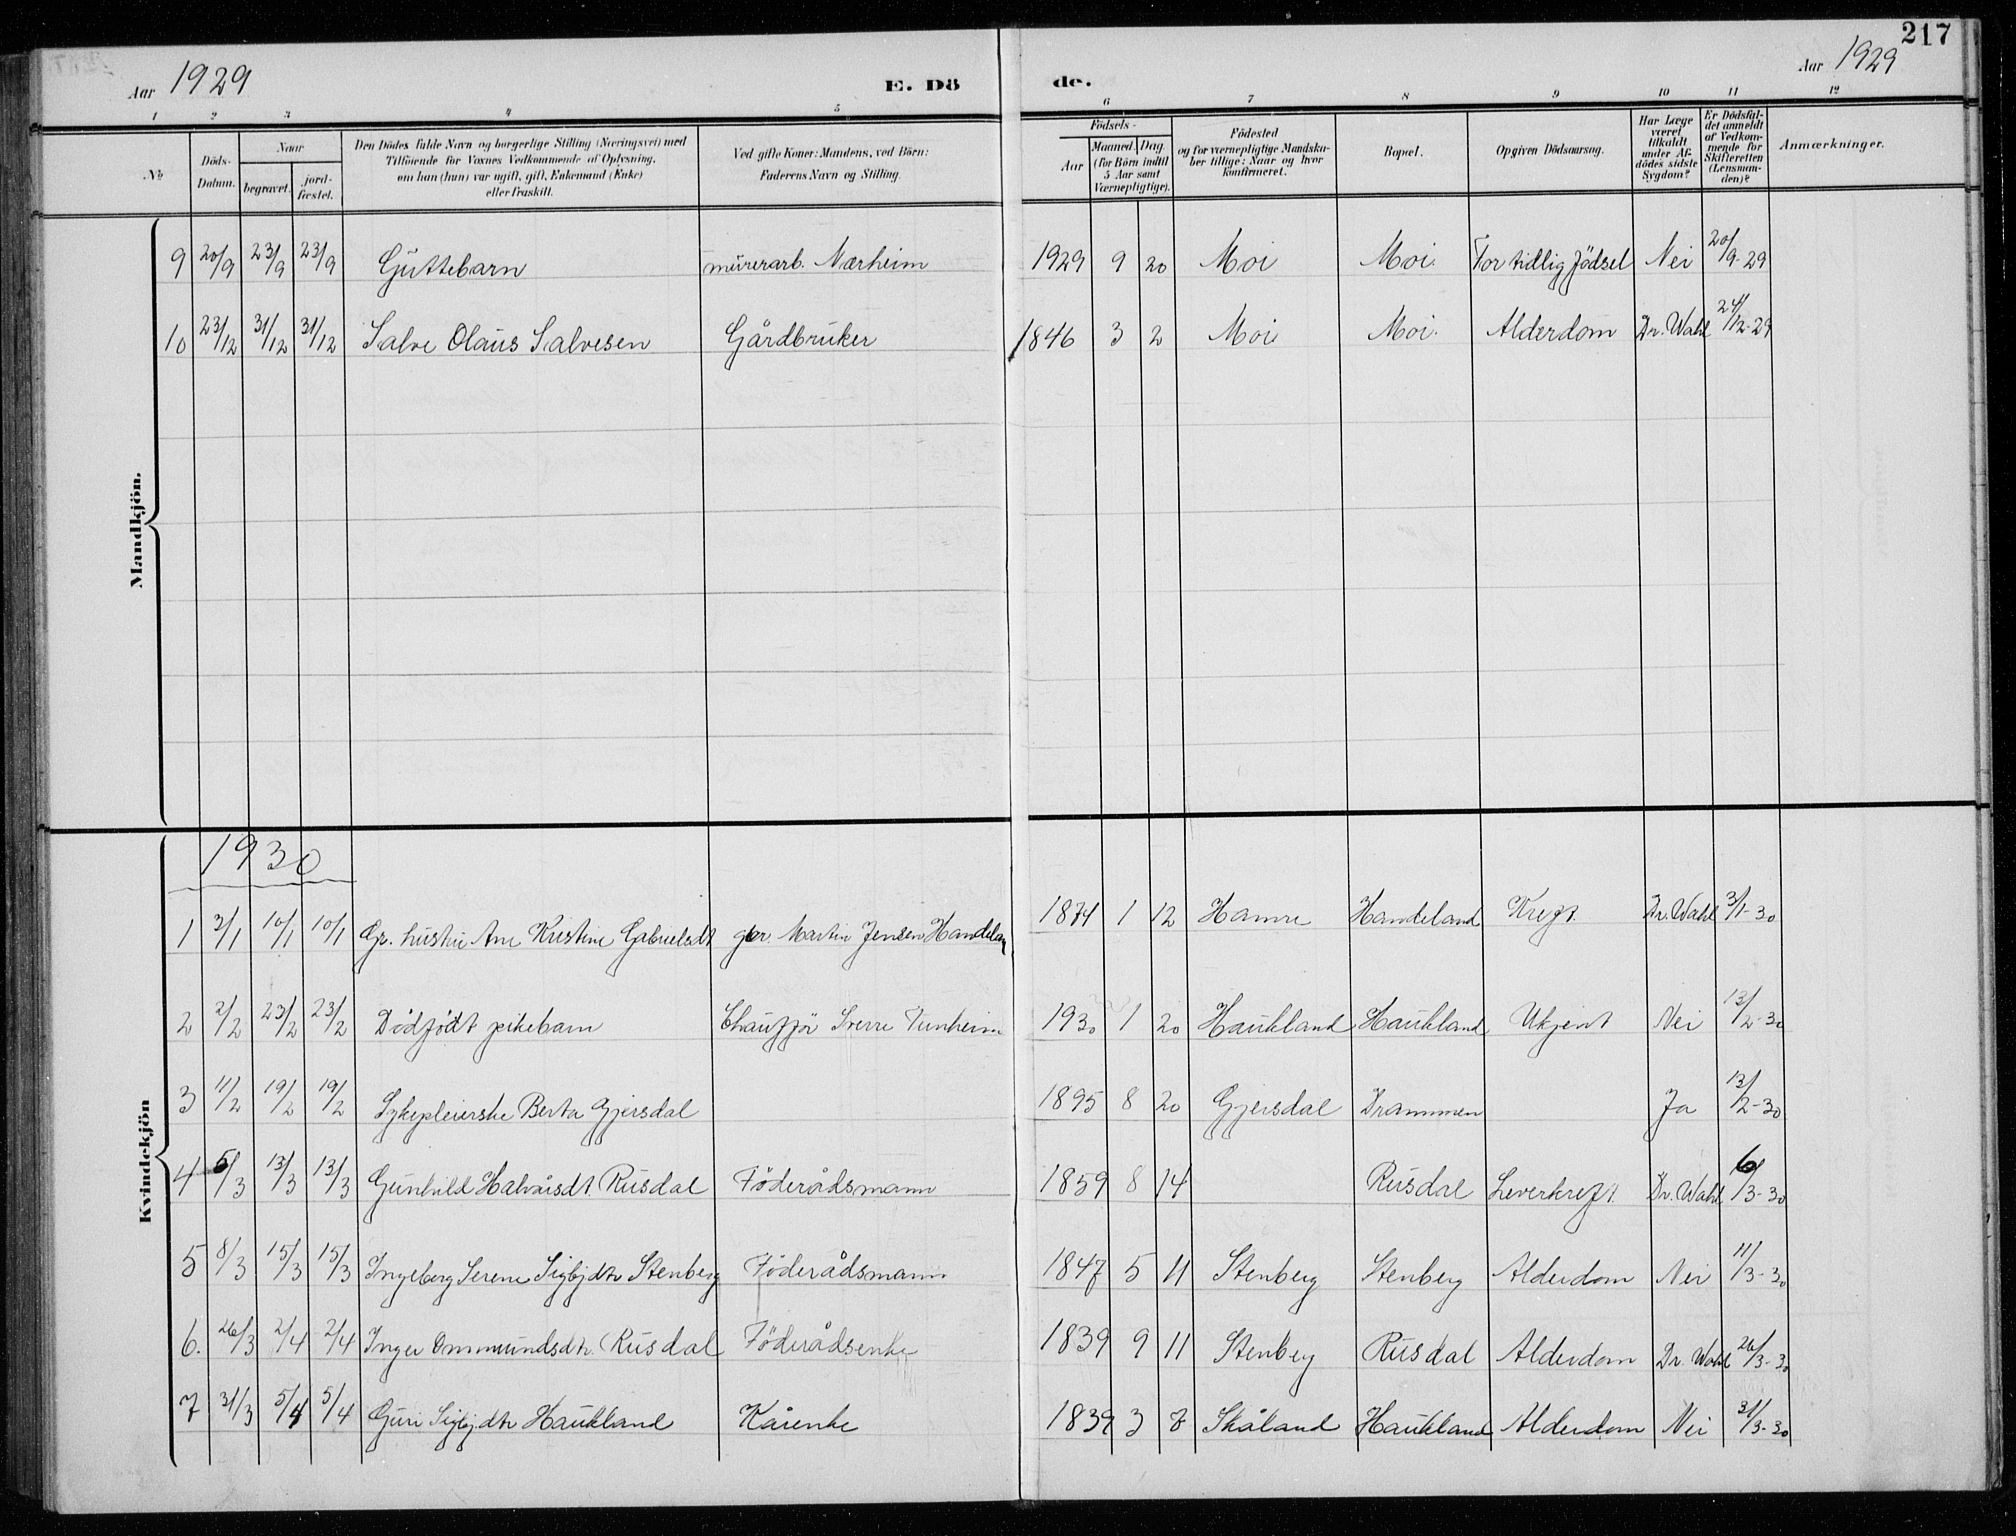 217
Aar 1929 E. Dö de. Aar 1929
1 2 3 4 5 6 7 8 9 10 11 12
№
Döds-Datum.
Naar
begravet.
jord-fæstet.
Den Dödes fulde Navn og borgerlige Stilling (Næringsvei) med
Tilföiende for Voxnes Vedkommende af Oplysning,
om han (hun) var ugift, gift, Enkemand (Enke)
eller fraskilt.
Ved gifte Koner: Mandens, ved Börn:
Faderens Navn og Stilling.
Födsels-
Aar
Maaned. Dag.
(for Börn indtil
5 Aar samt
Værnepligtige).
Födested
og for værnepligtige Mandska-
ber tillige: Naar og hvor
konfirmeret.
Bopæl.
Opgiven Dödsaarsag.
Har Læge
været
tilkaldt
under Af-
dödes sidste
Sygdom?
Er Dödsfal-
det anmeldt
af Vedkom-
mende for
Skifteretten
(Lensman-
den)?
Anmærkninger.
Mandkjön.
9 20/9 23/9 23/9 Guttebarn murerarb. Nærheim 1929 9 20 Moi Moi. For tidlig födsel Nei 20/9-29
10 23/12 31/12 31/12 Salve Olaus Salvesen Gårdbruker 1846 3 2 Moi Moi. Alderdom Dr. Wahl 24/12-29
Kvindekjön
1930
1 3/1 10/1 10/1 Gr. hustru Ane Kristine Gabrielsdt gbr. Martin Jensen Handeland 1874 1 12 Hamre Handeland Kreft Dr. Wahl 3/1-30
2 2/2 23/2 23/2 Dödfödt pikebarn Chaufför Sverre Tunheim 1930 1 20 Haukland Haukland Ukjent Nei 13/2-30
3 11/2 19/2 19/2 Sykepleierske Berta Gjersdal 1895 8 20 Gjersdal Drammen Ja 13/2-30
4 5/3 13/3 13/3 Gunhild Halvarsdt. Rusdal Föderådsmann 1859 8 14 Rusdal Leverkreft Dr. Wahl 6/3-30
5 8/3 15/3 15/3 Ingeborg Serene Sigbjdtr Stenberg Föderådsmann 1847 5 11 Stenberg Stenberg Alderdom Nei 11/3-30
6. 26/3 2/4 2/4 Inger Ommundsdtr. Rusdal Föderådsenke 1839 9 11 Stenberg Rusdal Alderdom Dr. Wahl 26/3-30
7 31/3 5/4 5/4 Guri Sigbjdtr Haukland Kårenke 1839 3 7 Skåland Haukland Alderdom Nei 31/3-30